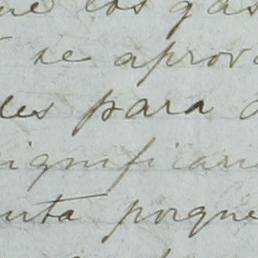 ue los gas
se aprov
des para
ignifican
nta porque